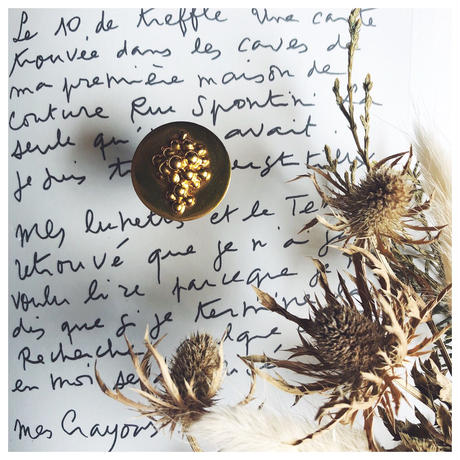 Le 10 de treffle Une carte
trouvée dans les caves de
ma première maison de
couture Rue Spontini
seule qu' avait
je suis
Mes lunettes et le Te
retrouvé que je n'a
voulu lire parce que je
dis que si je termine
Recherche lque
en moi se
mes Crayons